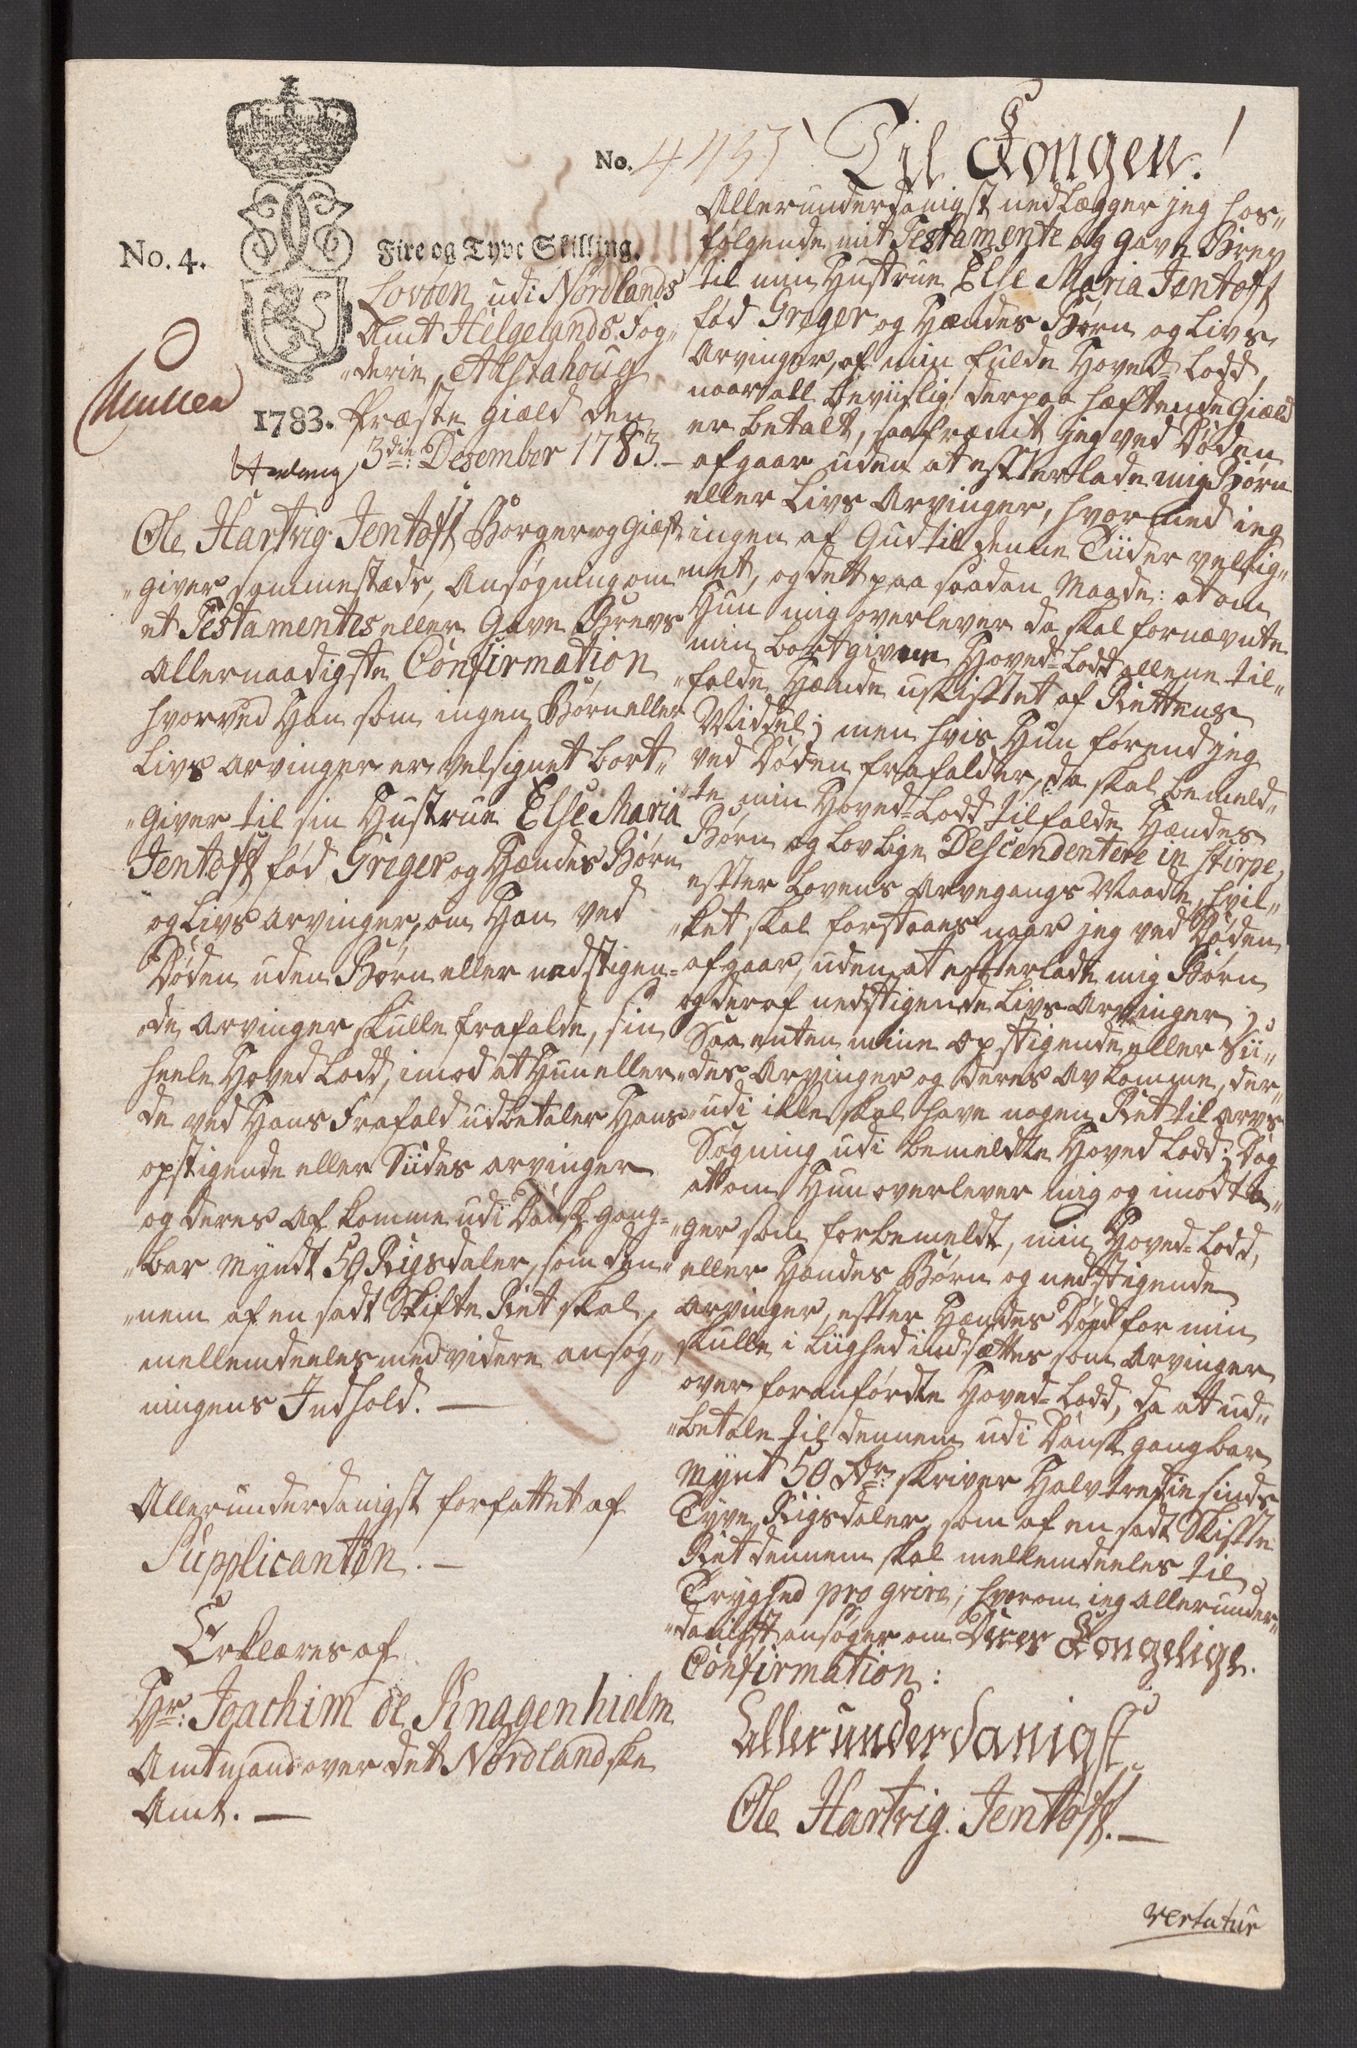 No. 4.
Fire og Tyve Skilling.
1783.
Lovöen udi Nordlands
Amt Helgelands Fog-
„derie, Alstahoug
Præste giæld den
3die Desember 1783.–
Ole Hartvig Jentoft Borger og Giæst-
„giver sammestæds, Ansøgning om
et Testamentes eller Gave Brevs
Allernaadigste Confirmation
hvorved Han som ingen Børn eller
Livs arvinger er velsignet bort-
„giver til sin Hustrue Else Maria
Jentoft fød Greger og Hændes Børn
og Livs arvinger, om Han ved
Døden uden Børn eller nedstigen-
„de arvinger skulle frafalde, sin
heele Hoved Lodd, imod at Hun eller
de ved Hans Frafald udbetaler Hans
opstigende eller Siides arvinger
og deres Afkomme udi Dansk gang-
„bar Myndt 50 Rigsdaler, som den-
„nem af en sadt Skifte Ret skal
mellemdeeles med videre ansøg-
ningens Indhold. —
Allerunderdanigst forfattet af
Supplicanten. —
Erklæres af
Hr: Joachim de Knagenhielm
Amtmand over det Nordlandske
Amt. —
No. 4457
Til Kongen!
Allerunderdanigst nedlægger jeg hos-
følgende mit Testamente og Gave Brev
til min Hustrue Else Maria Jentoft
fød Greger og Hændes Børn og Livs
Arvinger, af min fulde Hoved-Lodd,
naar all beviislig derpaa hæftende Giæld
er betalt, saafremt jeg ved Døden
afgaar uden at effterlade mig Børn
eller Livs Arvinger, hvormed jeg
ingen af Gud til denne Tiid er velsig-
„net, og det paa saadan Maade: at om
Hun mig overlever da skal fornævnte
min bortgivne Hoved-Lodd allene til-
„falde Hænde uskifftet af Rettens
Middel; men hvis Hun førend jeg
ved Døden frafalder, da skal bemeld-
„te min Hoved-Lodd tilfalde Hændes
Børn og lovlige Descendentere in stirpe,
effter Lovens Arvegangs Maade, hvil-
„ket skal forstaaes naar jeg ved Døden
afgaar, uden at effterlade mig Børn
og deraf nedstigende Livs Arvinger;
Saa enten mine Opstigende eller Sii-
„des Arvinger og deres Avkomme, der-
„udi ikke skal have nogen Ret til Arvs
Søgning udi bemeldte Hoved Lodd; Dog
at om Hun overlever mig og imodta-
„ger som forbemeldt, min Hoved-Lodd,
eller Hændes Børn og nedstigende
Arvinger, effter Hændes Død for min
skulle i Liighed indsættes som Arvinger
over foranførdte Hoved-Lodd, da at ud-
„betale til dennem udi Dansk gangbar
Mynt 50 Rdr: skriver Halvtredie sinds
Tyve Rigsdaler, som af en sadt Skiffte
Ret dennem skal mellemdeeles til
Tryghed pro qvira; hvorom jeg allerunder-
„danigst ansøger om Deres Kongelige
Confirmation:
Allerunderdanigst
Ole Hartvig Jentoft. —
vertatur